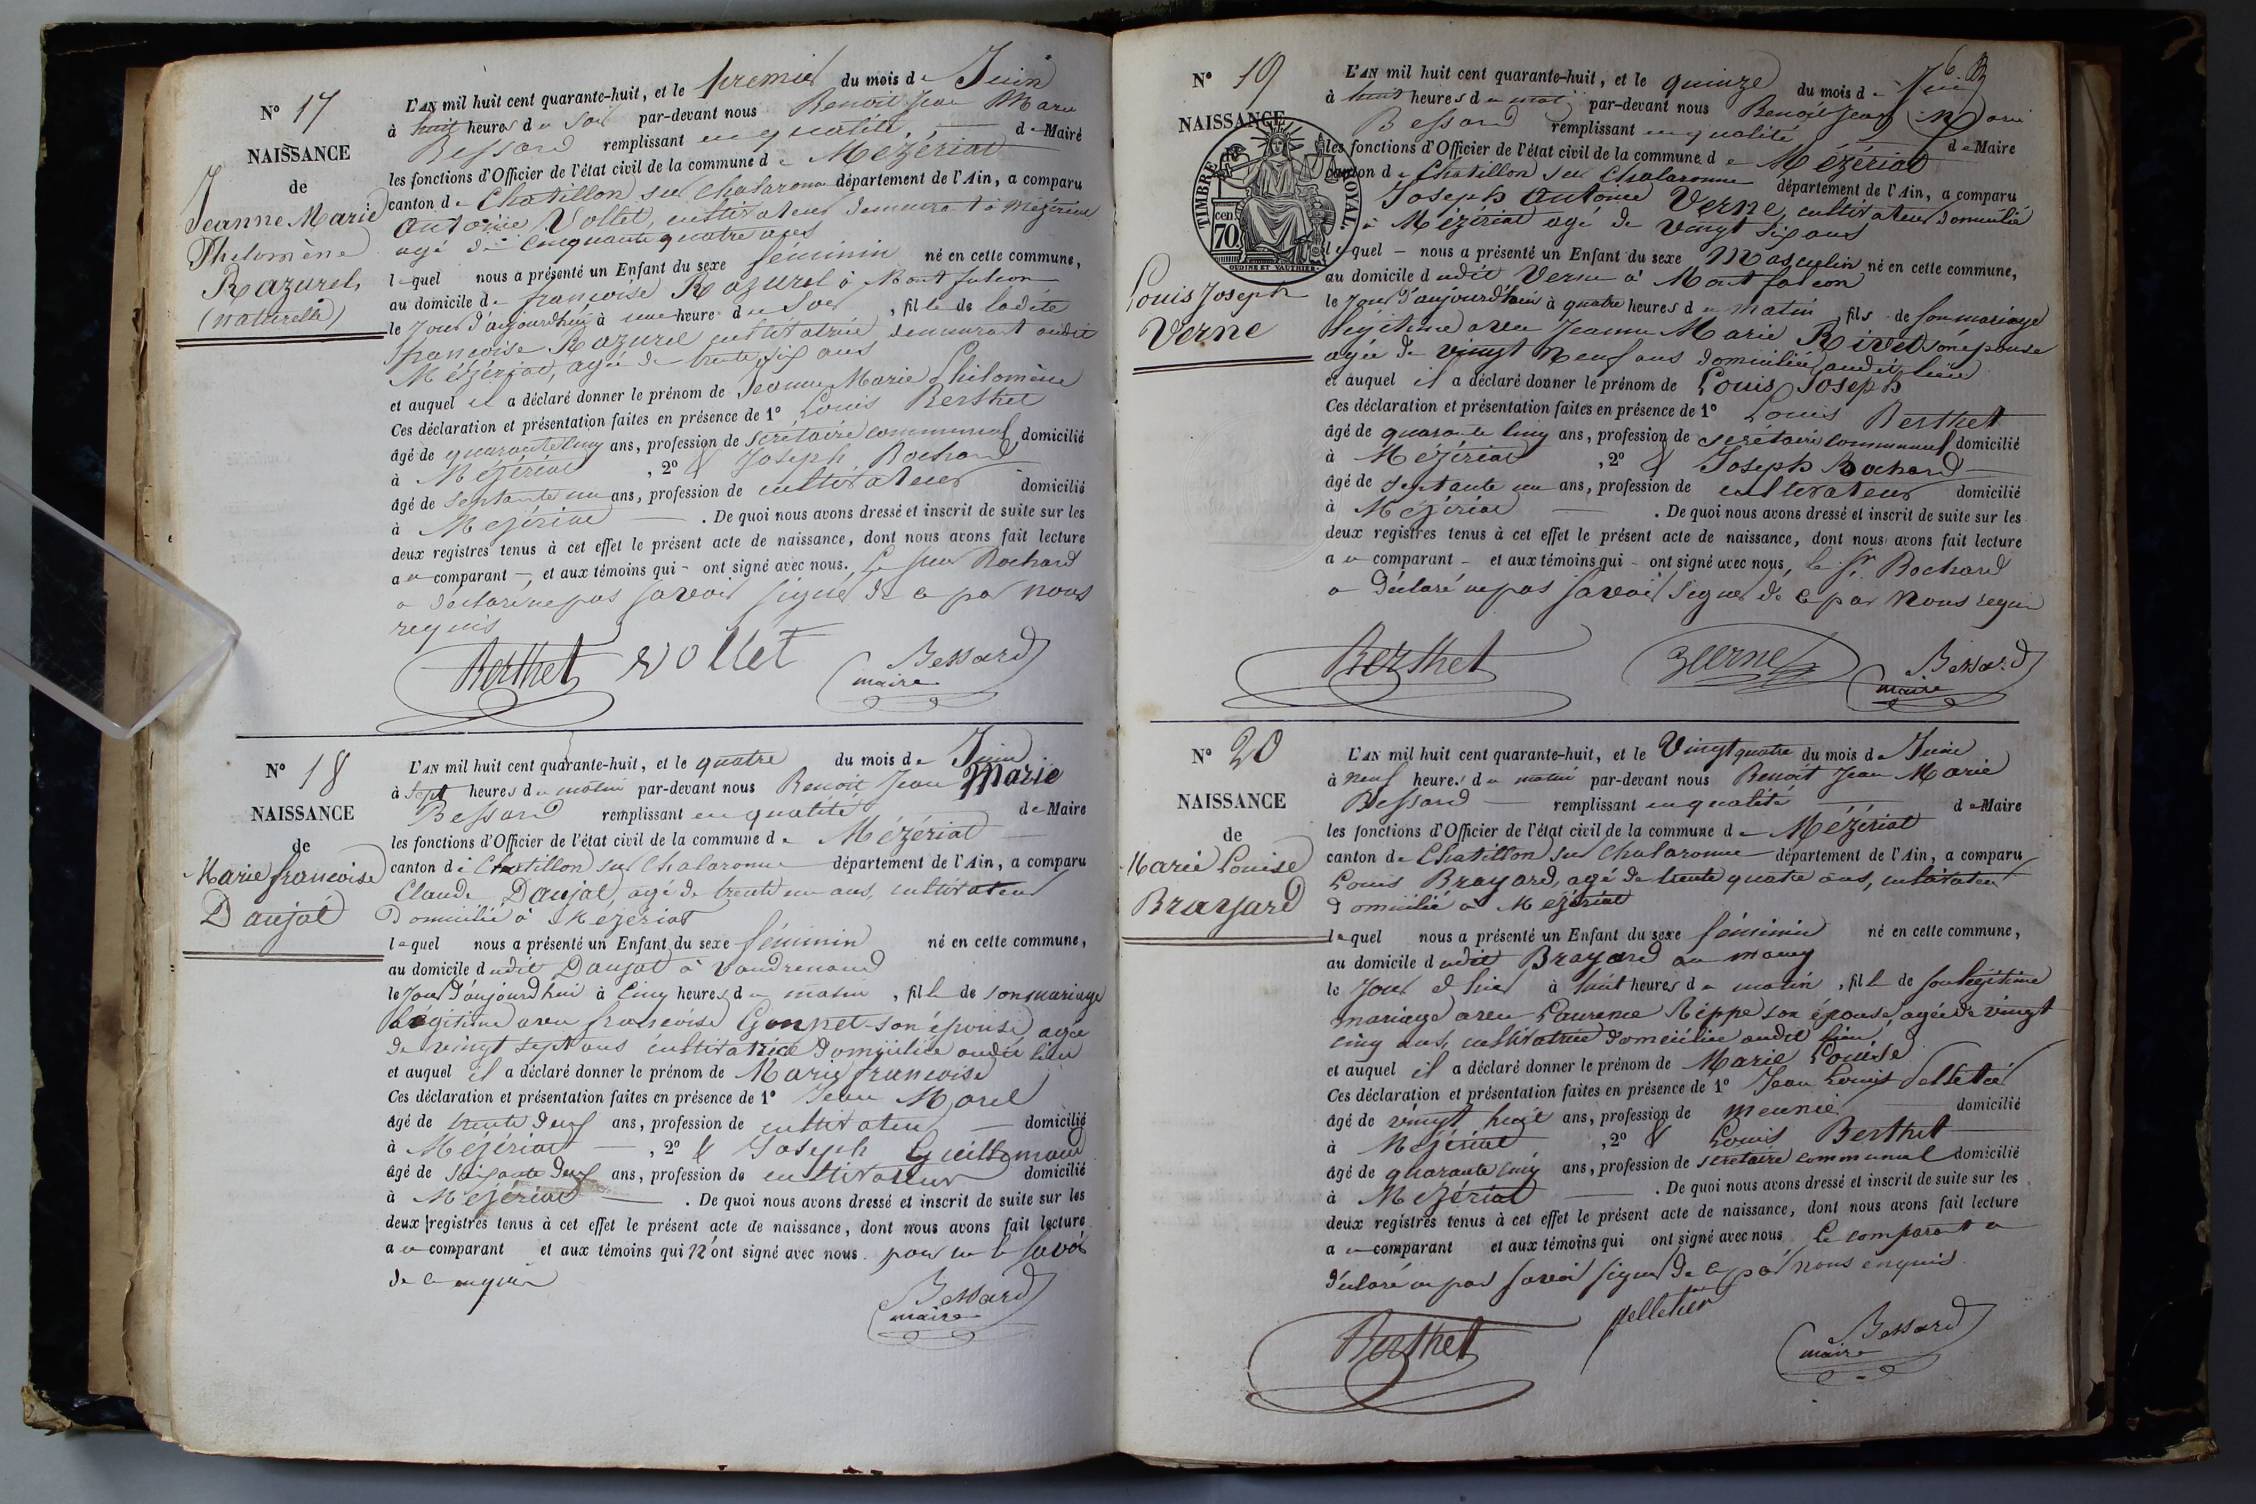 N° 17
NAISSANCE
de
Jeanne Marie
Philomène
Razurel
(naturelle)
L'AN mil huit cent quarante-huit, et le premier du mois de Juin
à huit heures du soir par-devant nous Benoit Jean Marie
Bessard remplissant en qualité de Maire
les fonctions d'Officier de l'état civil de la commune de Mézériat
canton de Chatillon sur Chalaronne département de l'Ain, a comparu
Antoine Vollet, cultivateur demeurant à Mézériat
agé de Cinquante quatre ans
lequel nous a présenté un Enfant du sexe féminin né en cette commune,
au domicile de françoise Razurel à Montfalcon
le Jour d'aujourdhui à une heure du Soir, fille de ladite
françoise Razurel cultivatrice demeurant audit
Mézériat, agée de trente six ans
et auquel il a déclaré donner le prénom de Jeanne Marie Philomène
Ces déclaration et présentation faites en présence de 1° Louis Berthet
âgé de quarante cinq ans, profession de secrétaire communal domicilié
à Mézériat, 2° & Joseph Rochard
âgé de septante un ans, profession de cultivateur domicilié
à Mézériat . De quoi nous avons dressé et inscrit de suite sur les
deux registres tenus à cet effet le présent acte de naissance, dont nous avons fait lecture
au comparant, et aux témoins qui ont signé avec nous. Le sieur Rochard
a déclaré ne pas savoir signer de ce par nous
requis
Berthet vollet Bessard
maire
N° 18
NAISSANCE
de
Marie françoise
Daujat
L'AN mil huit cent quarante-huit, et le quatre du mois de Juin
à sept heures du matin par-devant nous Benoit Jean Marie
Bessard remplissant en qualité de Maire
les fonctions d'Officier de l'état civil de la commune de Mézériat
canton de Chatillon sur Chalaronne département de l'Ain, a comparu
Claude Daujat, agé de trente un ans, cultivateur
Domicilié à Mézériat
lequel nous a présenté un Enfant du sexe féminin né en cette commune,
au domicile dudit Daujat à Vaudrenand
le Jour d'aujourdhui à cinq heures du matin, fille de son mariage
légitime avec françoise Gonnet son épouse, agée
de vingt sept ans cultivatrice domiciliée audit lieu
et auquel il a déclaré donner le prénom de Marie françoise
Ces déclaration et présentation faites en présence de 1° Jean Morel
âgé de trente deux ans, profession de cultivateur domicilié
à Mézériat, 2° & Joseph Guillemaud
âgé de soixante deux ans, profession de cultivateur domicilié
à Mézériat . De quoi nous avons dressé et inscrit de suite sur les
deux registres tenus à cet effet le présent acte de naissance, dont nous avons fait lecture
au comparant et aux témoins qui n'ont signé avec nous pour ne le savoir
de ce enquis
Bessard
maire
N° 19
NAISSANCE
TIMBRE ROYAL
cen.
70
OUDINE ET VAUTHIER
Louis Joseph
Verne
L'AN mil huit cent quarante-huit, et le quinze du mois de Juin
à huit heures du matin par-devant nous Benoit Jean Marie
Bessard remplissant en qualité de Maire
les fonctions d'Officier de l'état civil de la commune de Mézériat
canton de Chatillon sur Chalaronne département de l'Ain, a comparu
Joseph Antoine Verne, cultivateur domicilié
à Mézériat agé de vingt six ans
lequel nous a présenté un Enfant du sexe Masculin né en cette commune,
au domicile dudit Verne à Montfalcon
le Jour d'aujourdhui à quatre heures du matin, fils de son mariage
légitime avec Jeanne Marie Rivet son épouse
agée de vingt neuf ans domiciliée audit lieu
et auquel il a déclaré donner le prénom de Louis Joseph
Ces déclaration et présentation faites en présence de 1° Louis Berthet
âgé de quarante cinq ans, profession de secrétaire communal domicilié
à Mézériat, 2° & Joseph Rochard
âgé de septante un ans, profession de cultivateur domicilié
à Mézériat . De quoi nous avons dressé et inscrit de suite sur les
deux registres tenus à cet effet le présent acte de naissance, dont nous avons fait lecture
au comparant et aux témoins qui ont signé avec nous, le Sr Rochard
a déclaré ne pas savoir signer de ce par nous requis
Berthet Verne Bessard
maire
N° 20
NAISSANCE
de
Marie Louise
Brayard
L'AN mil huit cent quarante-huit, et le Vingt quatre du mois de Juin
à neuf heures du matin par-devant nous Benoit Jean Marie
Bessard remplissant en qualité de Maire
les fonctions d'Officier de l'état civil de la commune de Mézériat
canton de Chatillon sur Chalaronne département de l'Ain, a comparu
Louis Brayard, agé de trente quatre ans, cultivateur
domicilié à Mézériat
lequel nous a présenté un Enfant du sexe féminin né en cette commune,
au domicile dudit Brayard au
le Jour d'hier à huit heures du matin, fille de son légitime
mariage avec Laurence Rippe son épouse, agée de vingt
cinq ans, cultivatrice domiciliée audit lieu
et auquel il a déclaré donner le prénom de Marie Louise
Ces déclaration et présentation faites en présence de 1° Jean Louis Pelletier
âgé de vingt huit ans, profession de meunier domicilié
à Mézériat, 2° & Louis Berthet
âgé de quarante cinq ans, profession de secrétaire communal domicilié
à Mézériat . De quoi nous avons dressé et inscrit de suite sur les
deux registres tenus à cet effet le présent acte de naissance, dont nous avons fait lecture
au comparant et aux témoins qui ont signé avec nous Le comparant a
déclaré ne pas savoir signer de ce par nous enquis
Berthet pelletier Bessard
maire